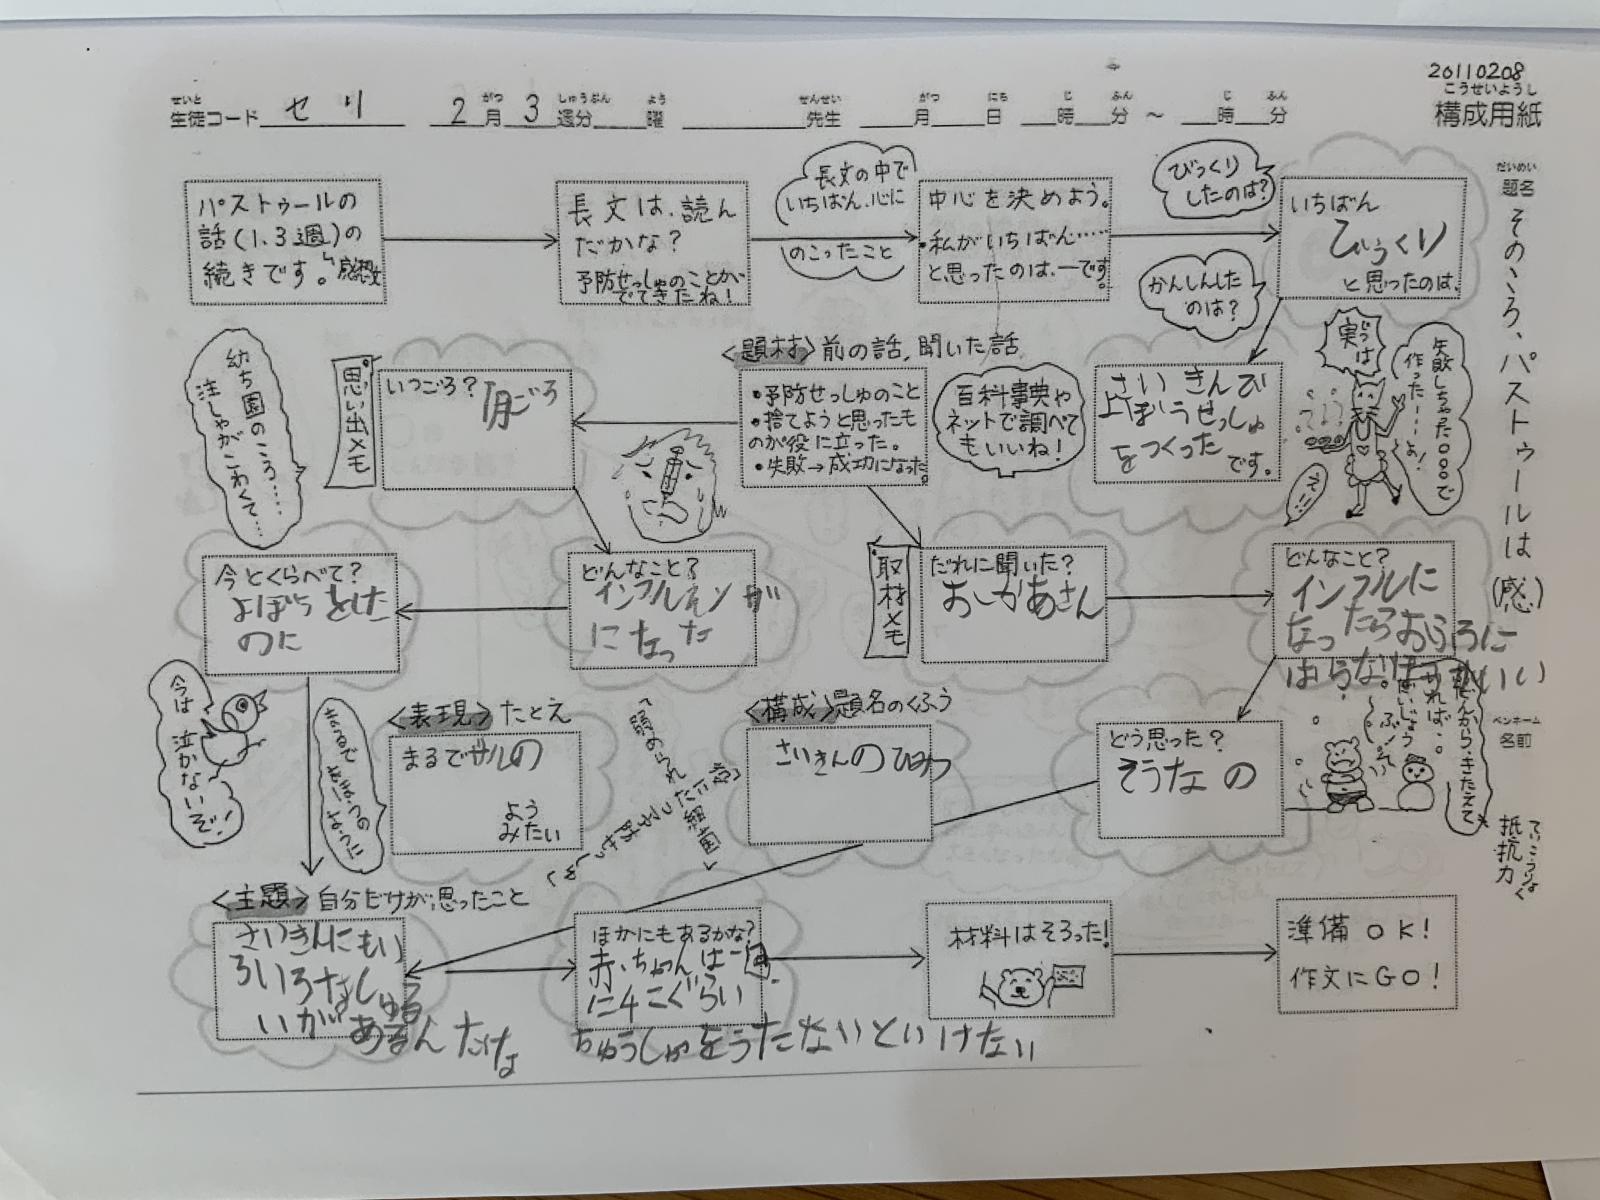 20110208
こうせいようし
構成用紙
せいと
生徒コード セリ
がつ しゅうぶん よう
2月 3週分 曜
せんせい
先生
がつ にち じ ふん じ ふん
月 日 時 分 ～ 時 分
だいめい
題名
そのころ、パストゥールは(感)
パストゥールの
話(1.3週)の
続きです。
感想文
長文は、読ん
だかな？
予防せっしゅのことが
でてきたね！
長文の中で
いちばん、心に
のこったこと
中心を決めよう。
・私がいちばん……
と思ったのは、ーです。
びっくり
したのは？
かんしんした
のは？
いちばん
びっくり
と思ったのは、
実は
じつ
失敗しちゃった○○○で
作ったーーよ！
さいきんび
よぼうせっしゅ
をつくった
です。
<題材>前の話、聞いた話
・予防せっしゅのこと
・捨てようと思ったも
のが役に立った。
・失敗→成功になった。
百科事典や
ネットで調べて
もいいね！
思い出メモ
いつごろ？
1月ごろ
幼ち園のころ……
注しゃがこわくて…
どんなこと？
インフルエンザ
になった
今とくらべて？
よぼうをした
のに
今は
泣かないぞ！
取材メモ
だれに聞いた？
おかあさん
どんなこと？
インフルに
なったらおふろに
はいらないほうがいい
どう思った？
そうなの
ふだんから、きたえて
いれば、。
だいじょう
ぶ！
ペンネーム
名前
ていこうりょく
抵抗力
<構成>題名のくふう
さいきんのひみつ
<表現>たとえ
まるでサルの
よう
みたい
<主題>自分だけが思ったこと
さいきんにもい
ろいろなしゅる
いがあるんだな
ほかにもあるかな？
赤ちゃんは一回
に4こぐらい
ちゅうしゃをうたないといけない
材料はそろった！
準備OK！
作文にGO！